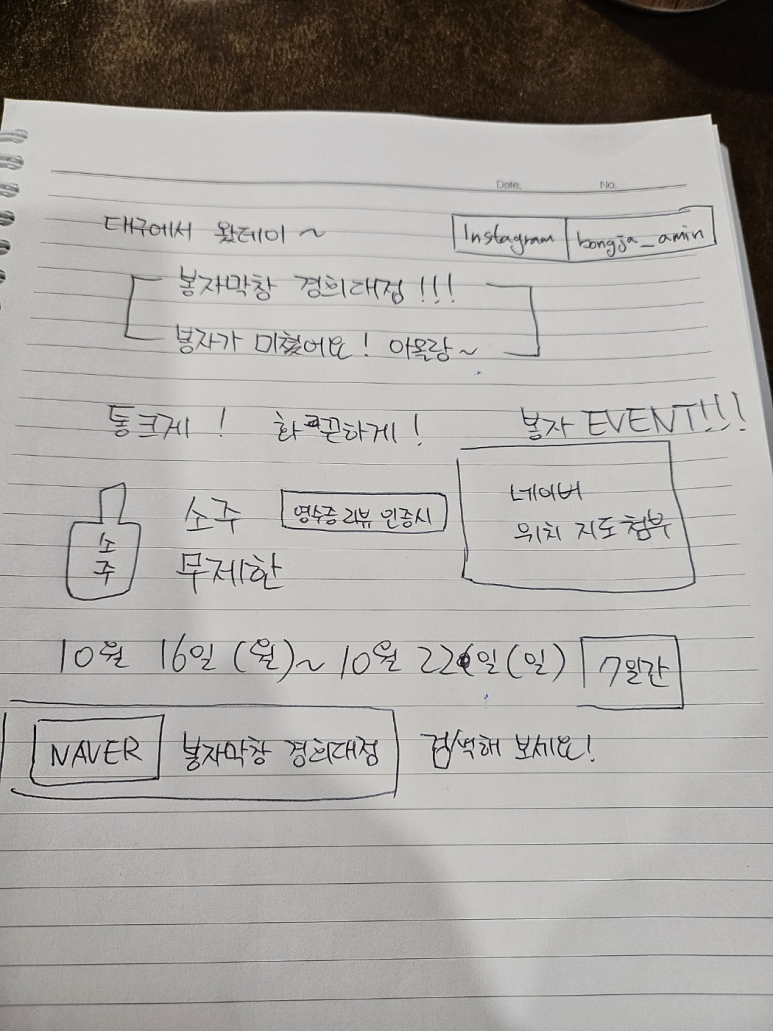 Date. No.
대구에서 왔데이~ Instagram bongja_amin
봉자막창 경희대점!!!
봉자가 미쳤어요! 아올랑~
통크게! 화끈하게! 봉자 EVENT!!!
소주 소주 무제한 영수증 리뷰 인증시
네이버
위치 지도 첨부
10월 16일 (월)~10월 22일 (일) 7일간
NAVER 봉자막창 경희대점 검색해 보세요!